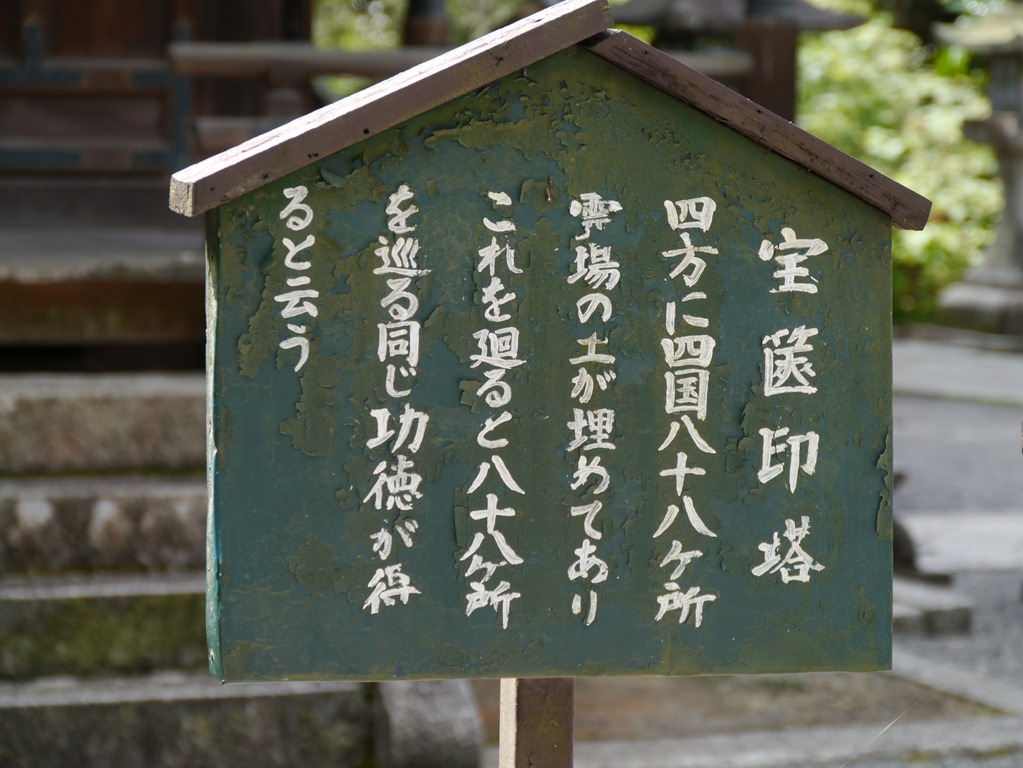 宝篋印塔
四方に四国八十八ケ所
霊場の土が埋めてあり
これを廻ると八十八ケ所
を巡る同じ功徳が得
ると云う